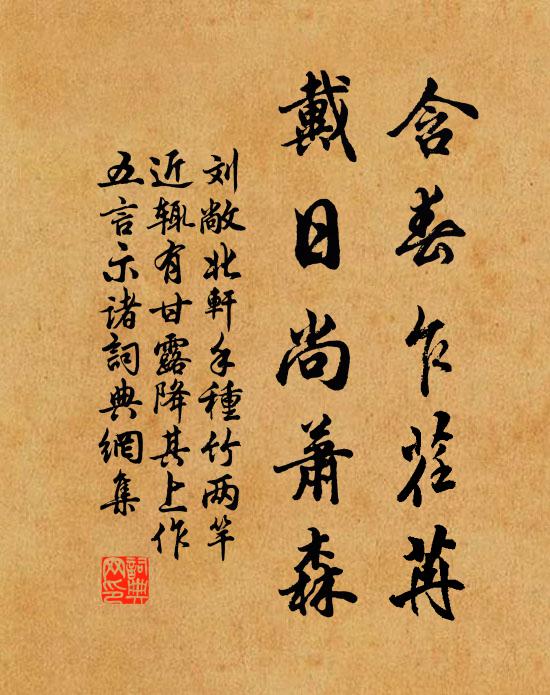 含春乍荏苒
戴日尚萧森
刘敞北軒手種竹两竿
近辄有甘露降其上作
五言示诸詞典網集
詞典網印